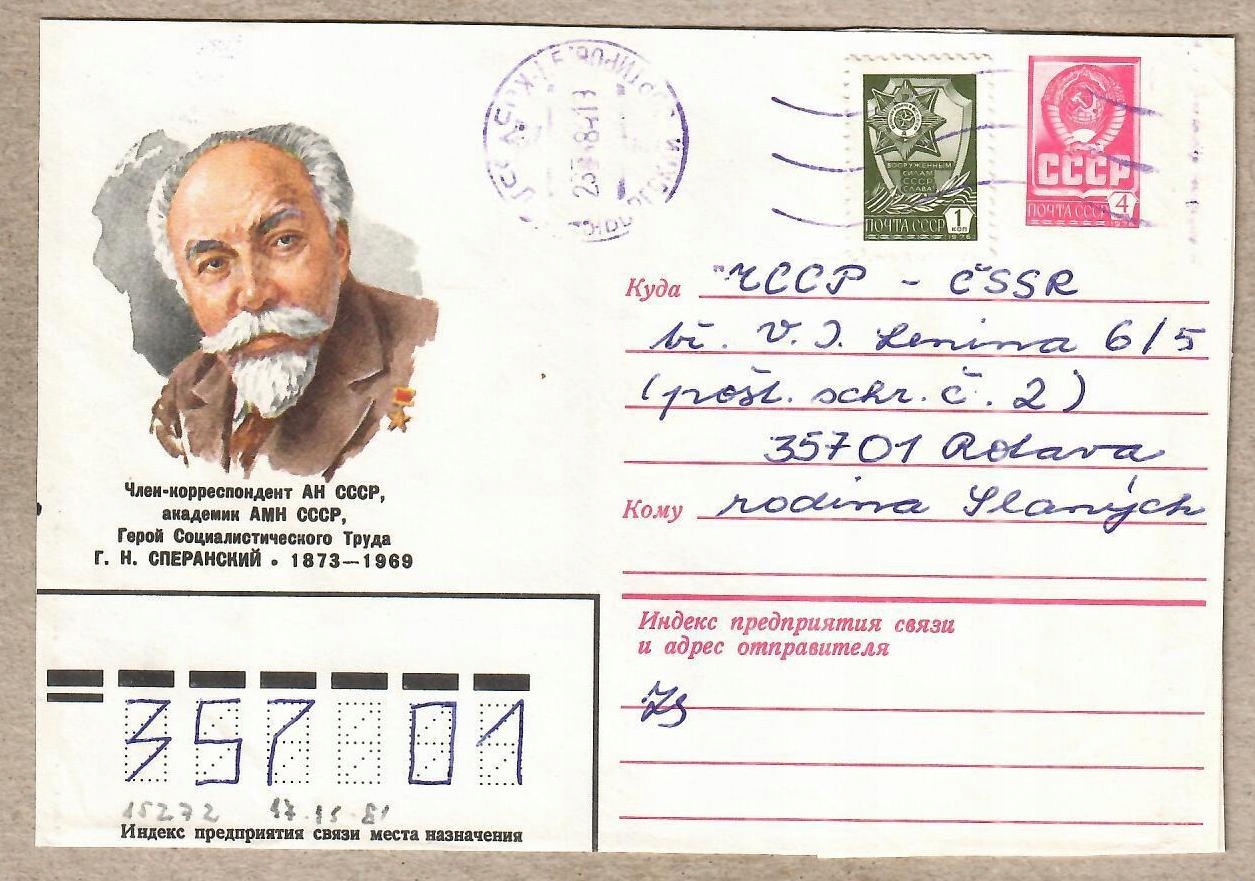 ВООРУЖЕННЫМ
СИЛАМ
СССР
СЛАВА!
ПОЧТА СССР
1
КОП
1976
СССР
4
ПОЧТА СССР
Куда ЧССР - ČSSR
tř. V. I. Lenina 6/5
(pošt. schr. č. 2)
35701 Rotava
Кому rodina Slaných
Член-корреспондент АН СССР,
академик АМН СССР,
Герой Социалистического Труда
Г. Н. СПЕРАНСКИЙ • 1873—1969
Индекс предприятия связи
и адрес отправителя
357 01
15272 17.11.81
Индекс предприятия связи места назначения